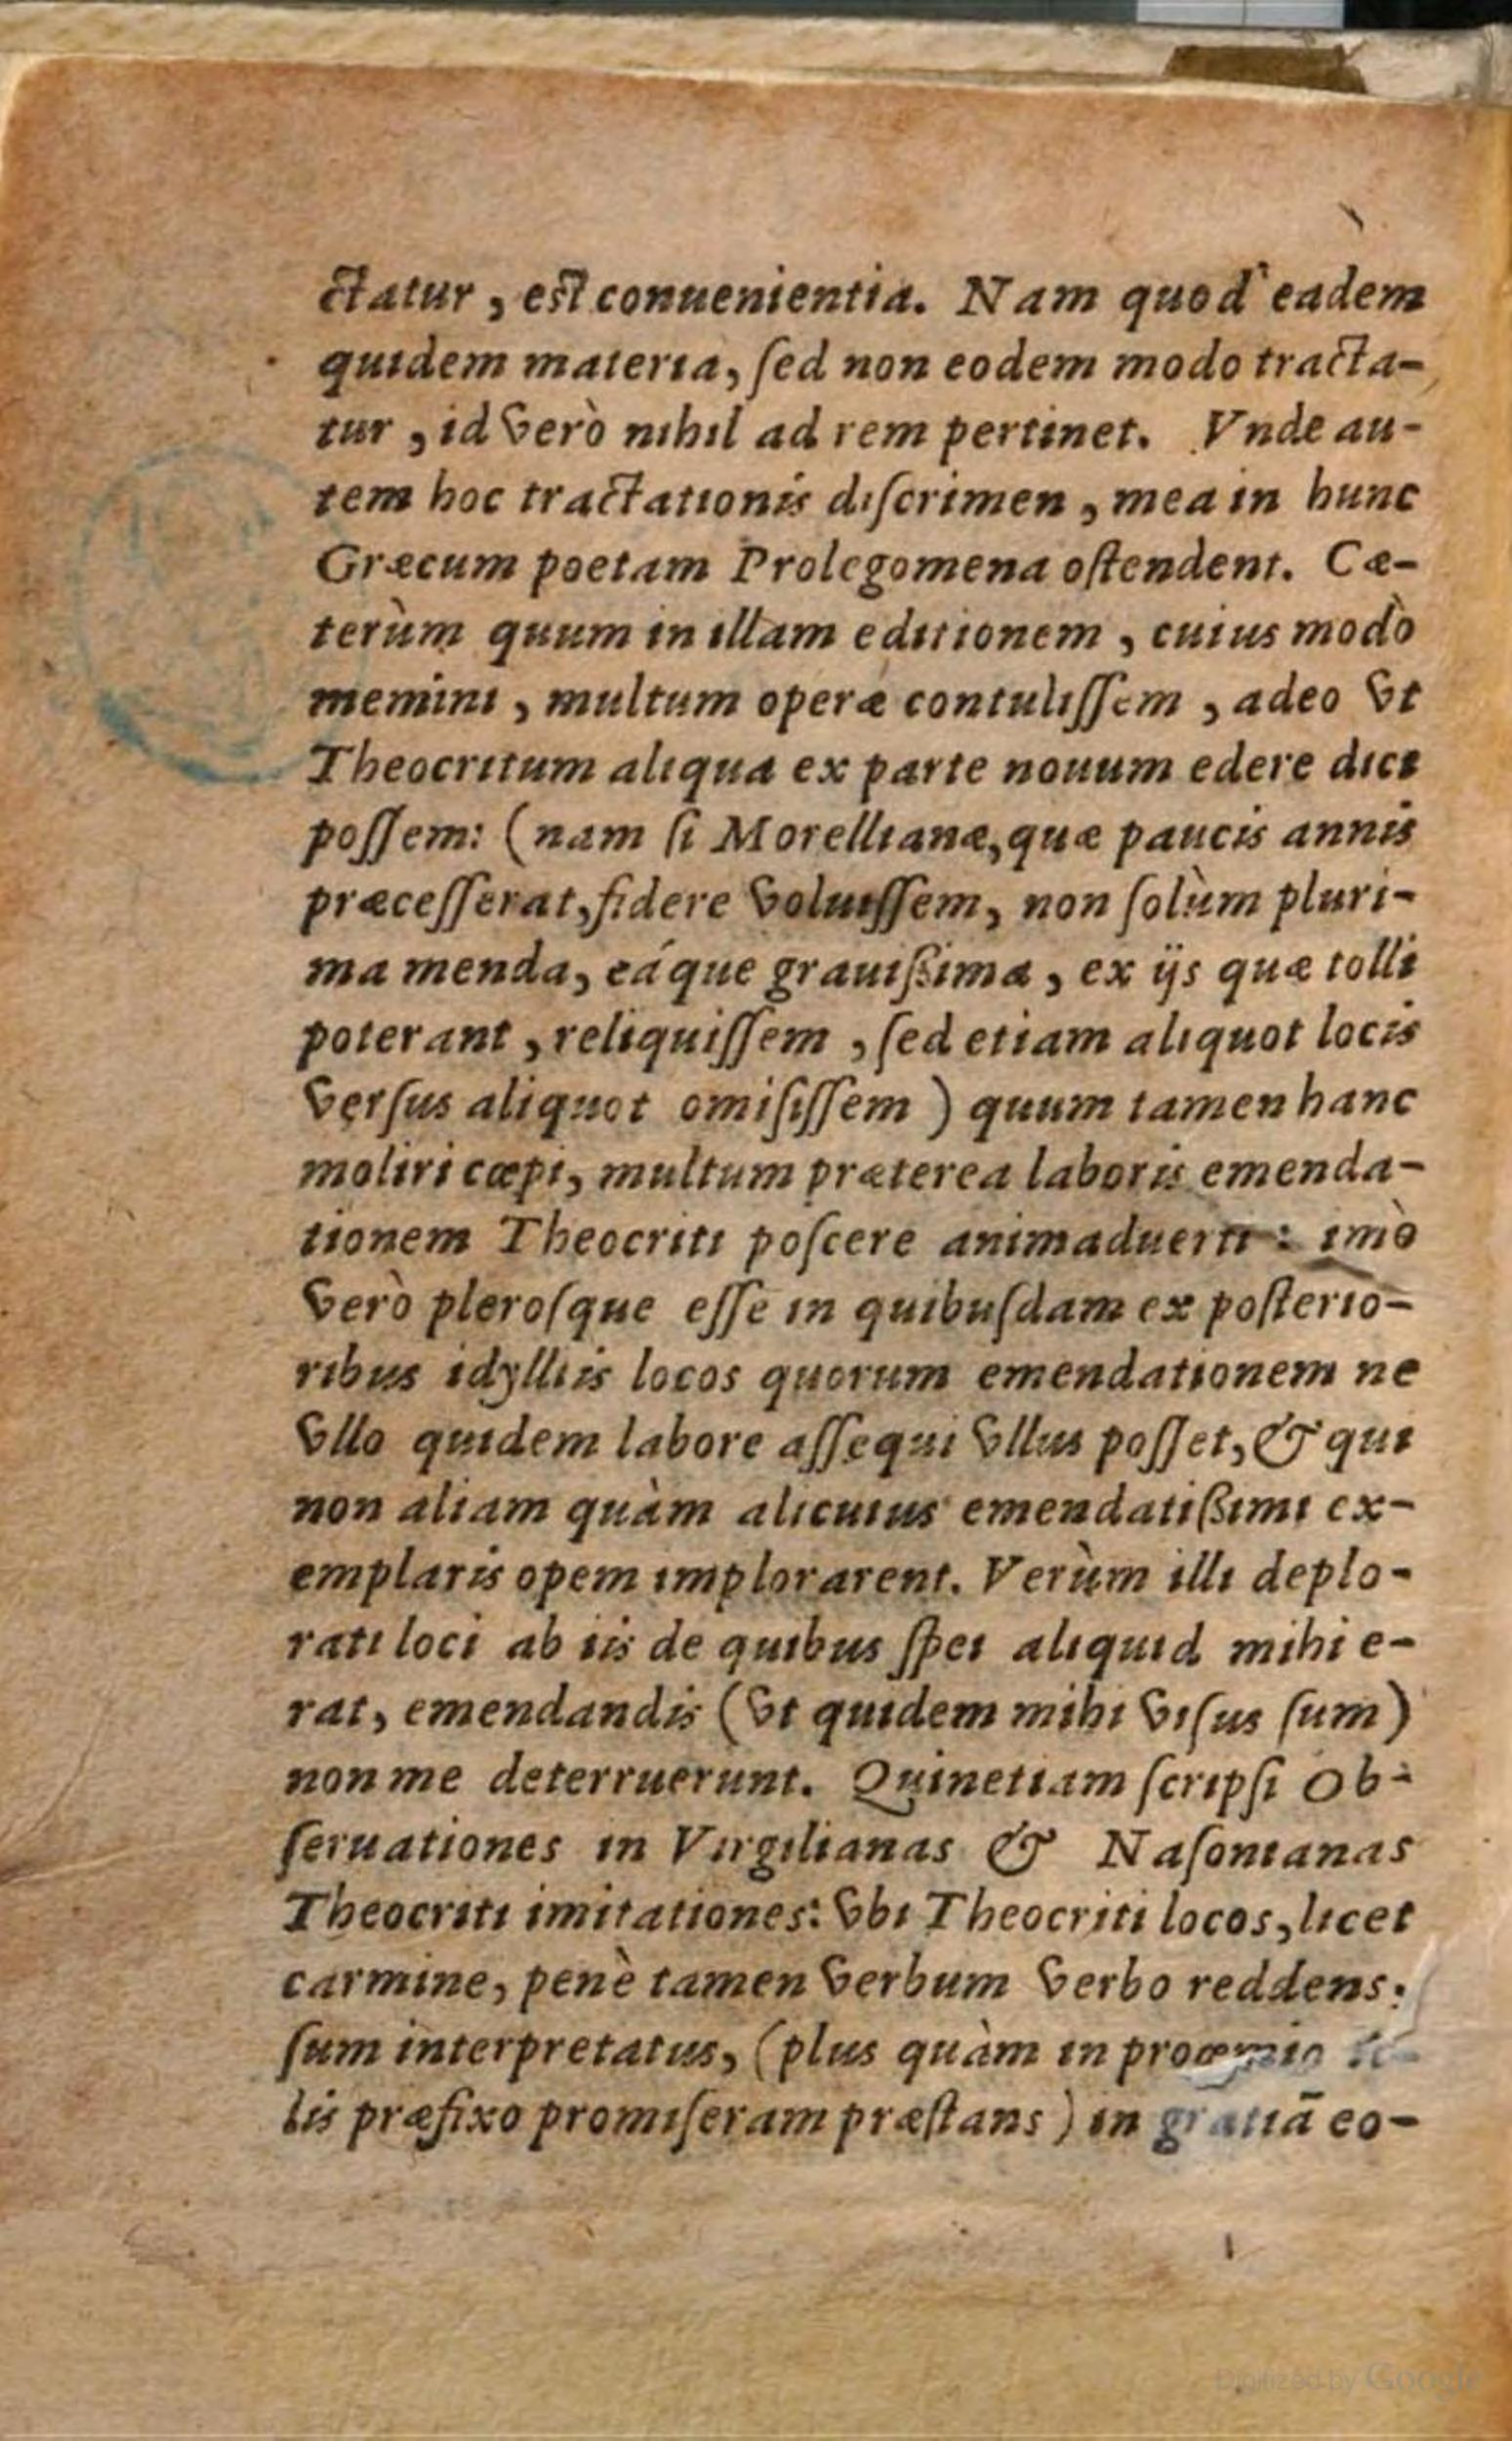 ctatur, est conuenientia. Nam quod eadem
quidem materia, ſed non eodem modo tracta-
tur, id verò nihil ad rem pertinet. Vnde au-
tem hoc tractationis diſcrimen, mea in hunc
Græcum poetam Prolegomena oſtendent. Cæ-
terùm quum in illam editionem, cuius modò
memini, multum operæ contuliſſem, adeo vt
Theocritum aliqua ex parte nouum edere dici
poſſem: (nam ſi Morellianæ, quæ paucis annis
præceſſerat, fidere voluiſſem, non ſolùm pluri-
ma menda, eáque grauiſsima, ex ijs quæ tolli
poterant, reliquiſſem, ſed etiam aliquot locis
verſus aliquot omiſiſſem) quum tamen hanc
moliri cœpi, multum præterea laboris emenda-
tionem Theocriti poſcere animaduerti: imò
verò pleroſque eſſe in quibuſdam ex poſterio-
ribus idylliis locos quorum emendationem ne
vllo quidem labore aſſequi vllus poſſet, & qui
non aliam quàm alicuius emendatiſsimi ex-
emplaris opem implorarent. Verùm illi deplo-
rati loci ab iis de quibus ſpei aliquid mihi e-
rat, emendandis (vt quidem mihi viſus ſum)
non me deterruerunt. Quinetiam ſcripſi Ob-
ſeruationes in Virgilianas & Naſonianas
Theocriti imitationes: vbi Theocriti locos, licet
carmine, penè tamen verbum verbo reddens,
ſum interpretatus, (plus quàm in proœmio
lis præfixo promiſeram præſtans) in gratiā eo-
Digitized by Google